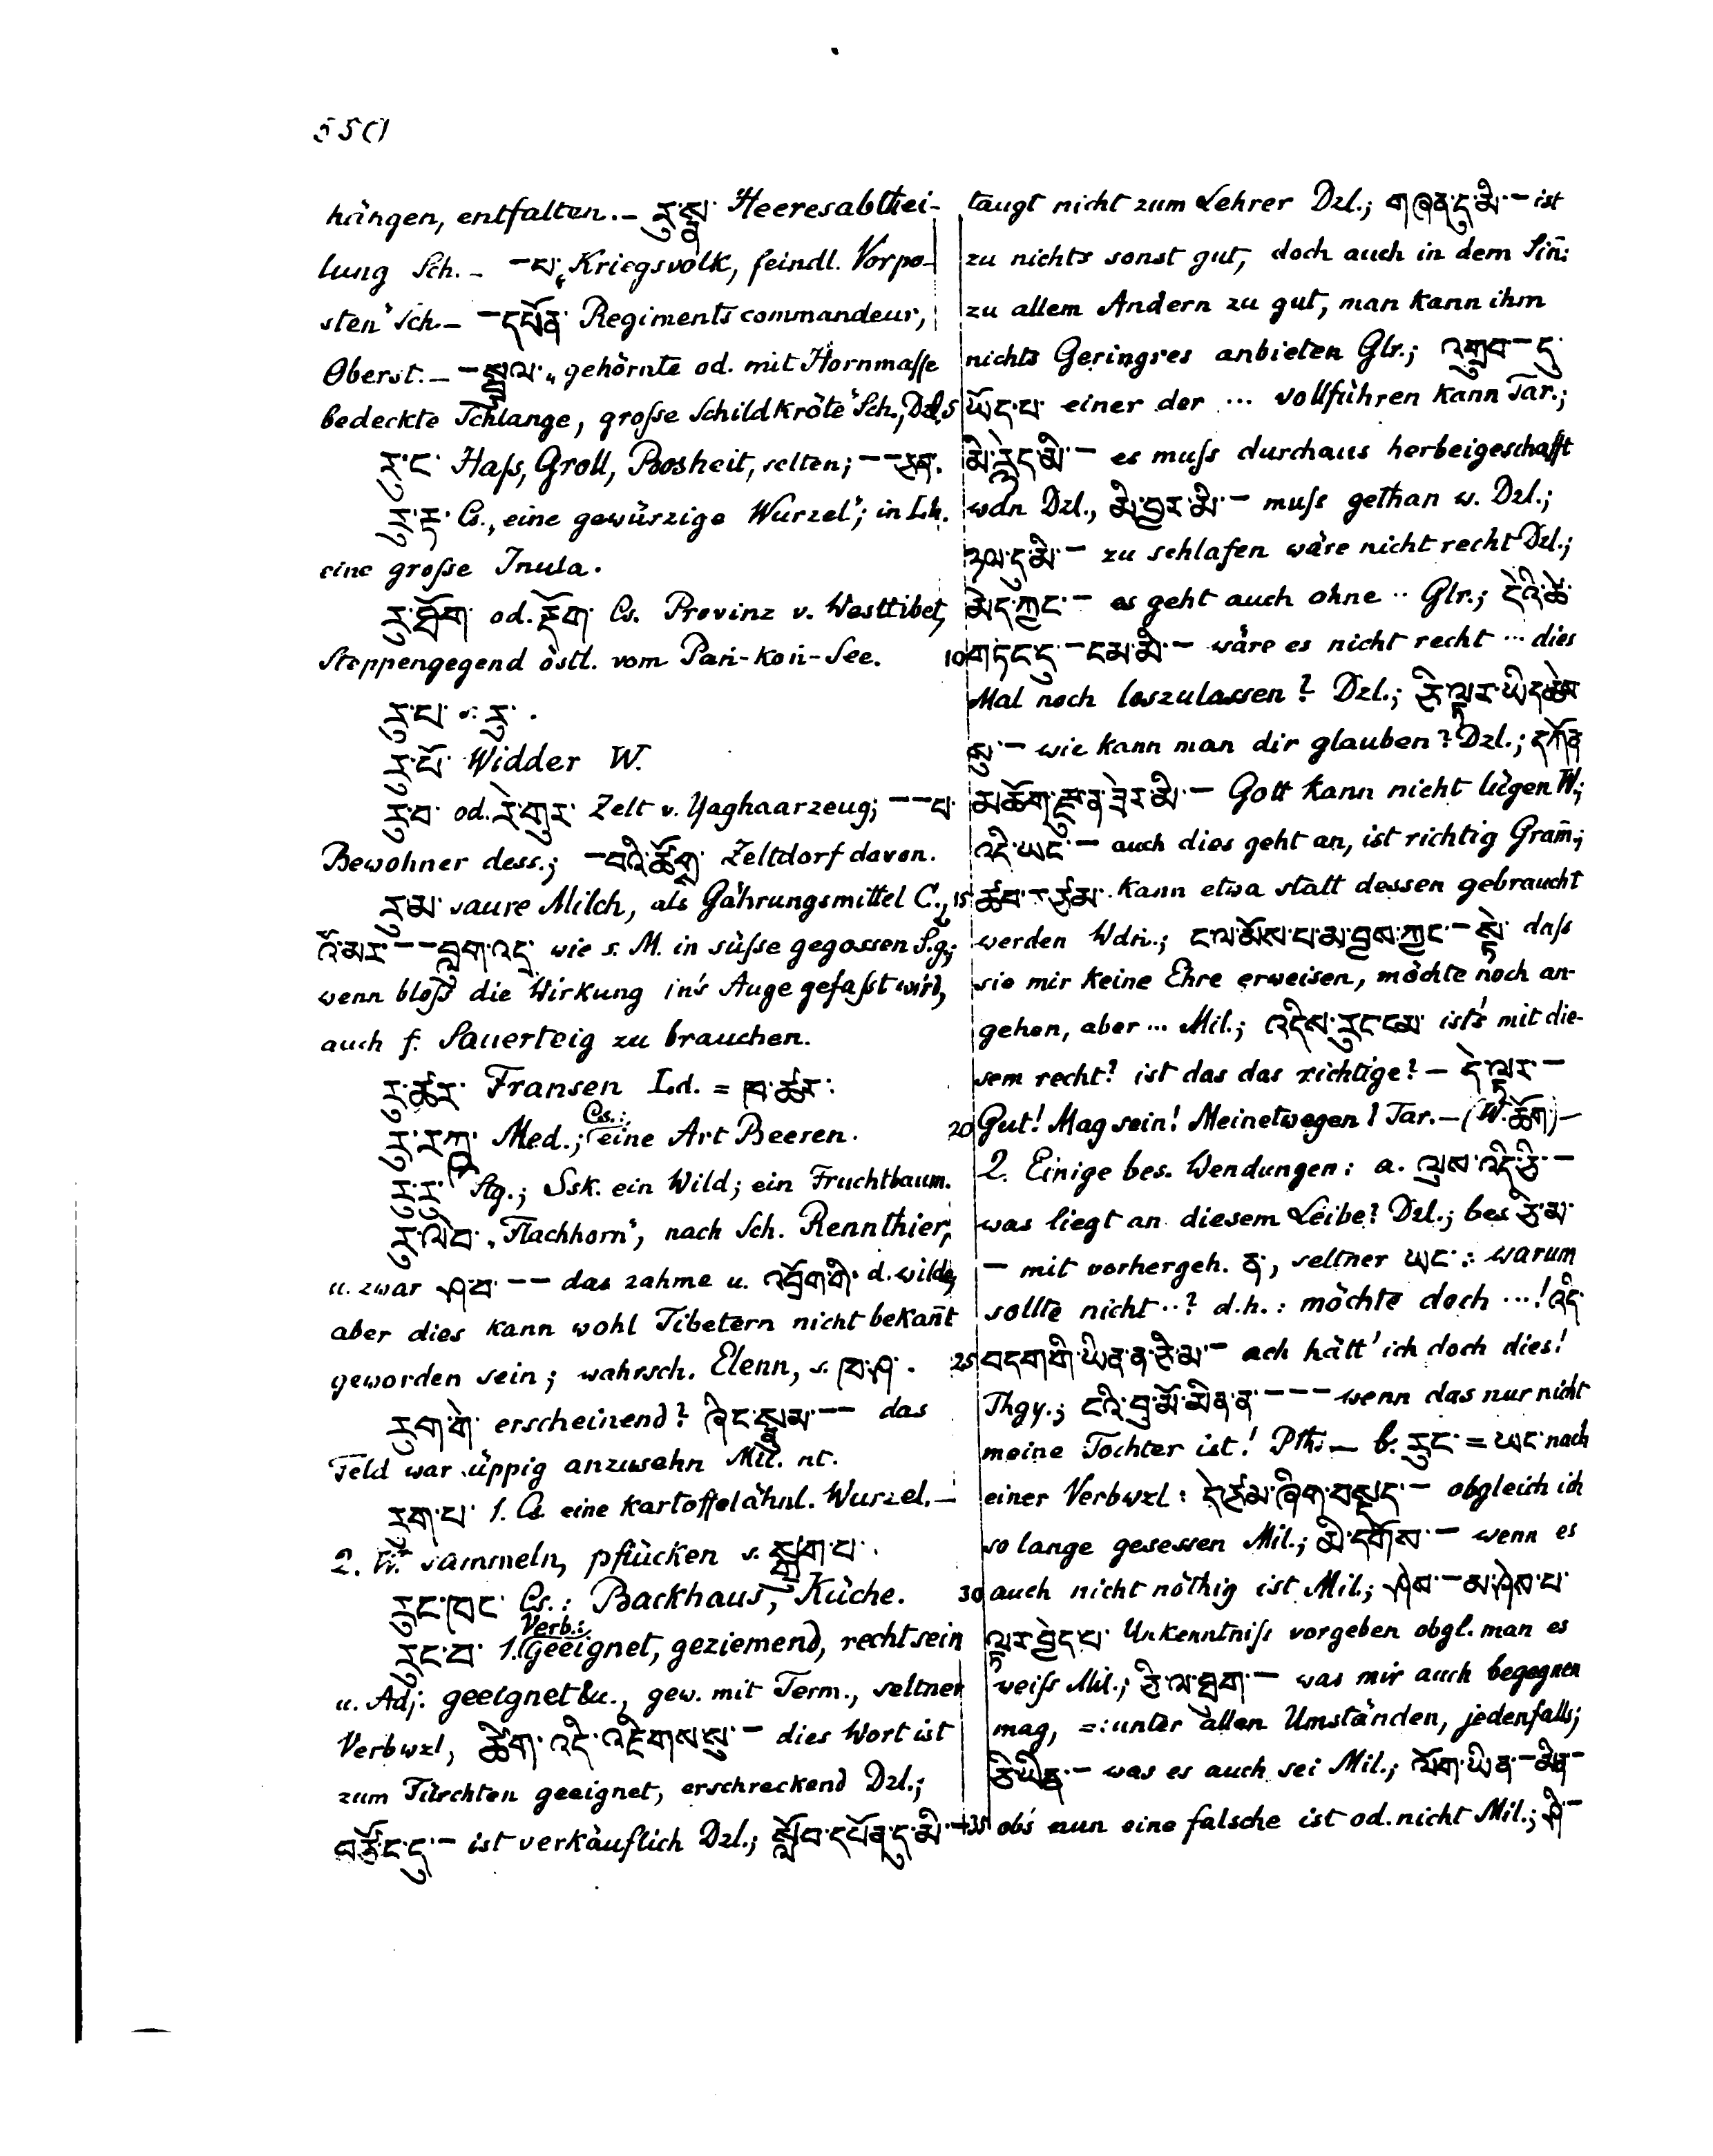 550
hängen, entfalten. – རུ་སྣ་ Heeresabthei-
lung Sch. – –པ་ „Kriegsvolk, feindl. Vorpo-
sten“ Sch. – –དཔོན་ Regimentscommandeur,
Oberst. – –སྦྲུལ་ „gehörnte od. mit Hornmasse
bedeckte Schlange, grosse Schildkröte“ Sch., Dzl.
རུ་ང་ Hass, Groll, Bosheit, selten; – –ཅན་
རུ་རྟ་ Cs., eine gewürzige Wurzel“; in Lh.
eine grosse Inula.
རུ་ཐོག་ od. རུ་ཐོག་ Cs. Provinz v. Westtibet,
Steppengegend östl. vom Paṅ-koṅ-See.
རུ་པ་ s: རུ་.
རུ་པོ་ Widder W.
རུ་བ་ od. རེ་གུར་ Zelt v. Yaghaarzeug; – –པ་
Bewohner dess.; –བའི་ཚོགས་ Zeltdorf davon.
རུ་མ་ saure Milch, als Gährungsmittel C.,
འོ་མར་ – –བླུག་འད་ wie s. M. in süsse gegossen S.g.;
wenn bloss die Wirkung in's Auge gefasst wird,
auch f. Sauerteig zu brauchen.
རུ་ཚར་ Fransen Ld. = ཁ་ཚར་:
རུ་རཀྵ་ Med.; Cs.: eine Art Beeren.
རུ་རུ་ Stg.; Ssk. ein Wild; ein Fruchtbaum.
རུ་ལེབ་ „Flachhorn“, nach Sch. Rennthier,
u. zwar ཤ་བ་ – – das zahme u. འབྲོག་གི་ d. wilde,
aber dies kann wohl Tibetern nicht bekañt
geworden sein; wahrsch. Elenn, s. ཁ་ཤ་.
རུག་གེ་ erscheinend? ཞིང་སྣུམ་ – – das
Feld war üppig anzusehn Mil. nt.
རུག་པ་ 1. Cs. eine kartoffelähnl. Wurzel. –
2. W.: sammeln, pflücken s. སྒྲུག་པ་.
རུང་ཁང་ Cs.: Backhaus, Küche.
རུང་བ་ 1. Verb.: Geeignet, geziemend, recht sein
u. Adj: geeignet &c., gew. mit Term., seltner
Verbwzl, ཚིག་འདི་འཇིགས་སུ་ – dies Wort ist
zum Fürchten geeignet, erschreckend Dzl.;
བཙོང་དུ་ – ist verkäuflich Dzl.; སློབ་དཔོན་དུ་མི་ –
taugt nicht zum Lehrer Dzl.; གཞན་དུ་མི་ – ist
zu nichts sonst gut, doch auch in dem Siñ:
zu allem Andern zu gut, man kann ihm
nichts Geringres anbieten Glr.; འགྲུབ་ – དུ་
5 ཡོད་པ་ einer der ... vollführen kann Tar.;
མི་རྙེད་མི་ – es muss durchaus herbeigeschafft
wdn Dzl., མི་བྱར་མི་ – muss gethan w. Dzl.;
ཉལ་དུ་མི་ – zu schlafen wäre nicht recht Dzl.;
མེད་ཀྱང་ – es geht auch ohne .. Glr.; དེའི་ཚེ་
10 གཏང་དུ་ – ངམ་མི་ – wäre es nicht recht ... dies
Mal noch loszulassen? Dzl.; ཅི་ལྟར་ཡིད་ཆེས་
སུ་ – wie kann man dir glauben? Dzl.; དཀོན་
མཆོག་རྫུན་ཟེར་མི་ – Gott kann nicht lügen W.;
འདི་ཡང་ – auch dies geht an, ist richtig Gram̄.;
15 ཚབ་ – ཙམ་ kann etwa statt dessen gebraucht
werden Wdṅ.; ང་ལ་མོས་པ་མ་བྱས་ཀྱང་ – སྟེ་ dass
sie mir keine Ehre erweisen, möchte noch an-
gehen, aber ... Mil.; འདིས་རུང་ངམ་ ist's mit die-
sem recht? ist das das richtige? – དེ་ལྟར་ –
20 Gut! Mag sein! Meinetwegen! Tar. – (W. ཆོག་) –
2. Einige bes. Wendungen: a. ལུས་འདི་ཅི་ –
was liegt an diesem Leibe? Dzl.; bes ཅི་མ་
– mit vorhergeh. ན་, seltner ཡང་: warum
sollte nicht ..? d.h.: möchte doch ...! འདི་
25 བདག་གི་ཡིན་ན་ཅི་མ་ – ach hätt' ich doch dies!
Thgy.; ངའི་བུ་མོ་མིན་ན་ – – – wenn das nur nicht
meine Tochter ist! Pth. – b. རུང་ = ཡང་ nach
einer Verbwzl: དེ་ཙམ་ཞིག་བསྡད་ – obgleich ich
so lange gesessen Mil.; མི་དགོས་ – wenn es
30 auch nicht nöthig ist Mil.; ཤེས་ – མ་ཤེས་པ་
ལྟར་བྱེད་པ་ Unkenntniss vorgeben obgl. man es
weiss Mil.; ཅི་ལ་ཐུག་ – was mir auch begegnen
mag, =: unter allen Umständen, jedenfalls;
ཅི་ཡིན་ – was es auch sei Mil.; ལོག་ཡིན་ – མིན་ –
35 obs nun eine falsche ist od. nicht Mil.; ཤི་ –